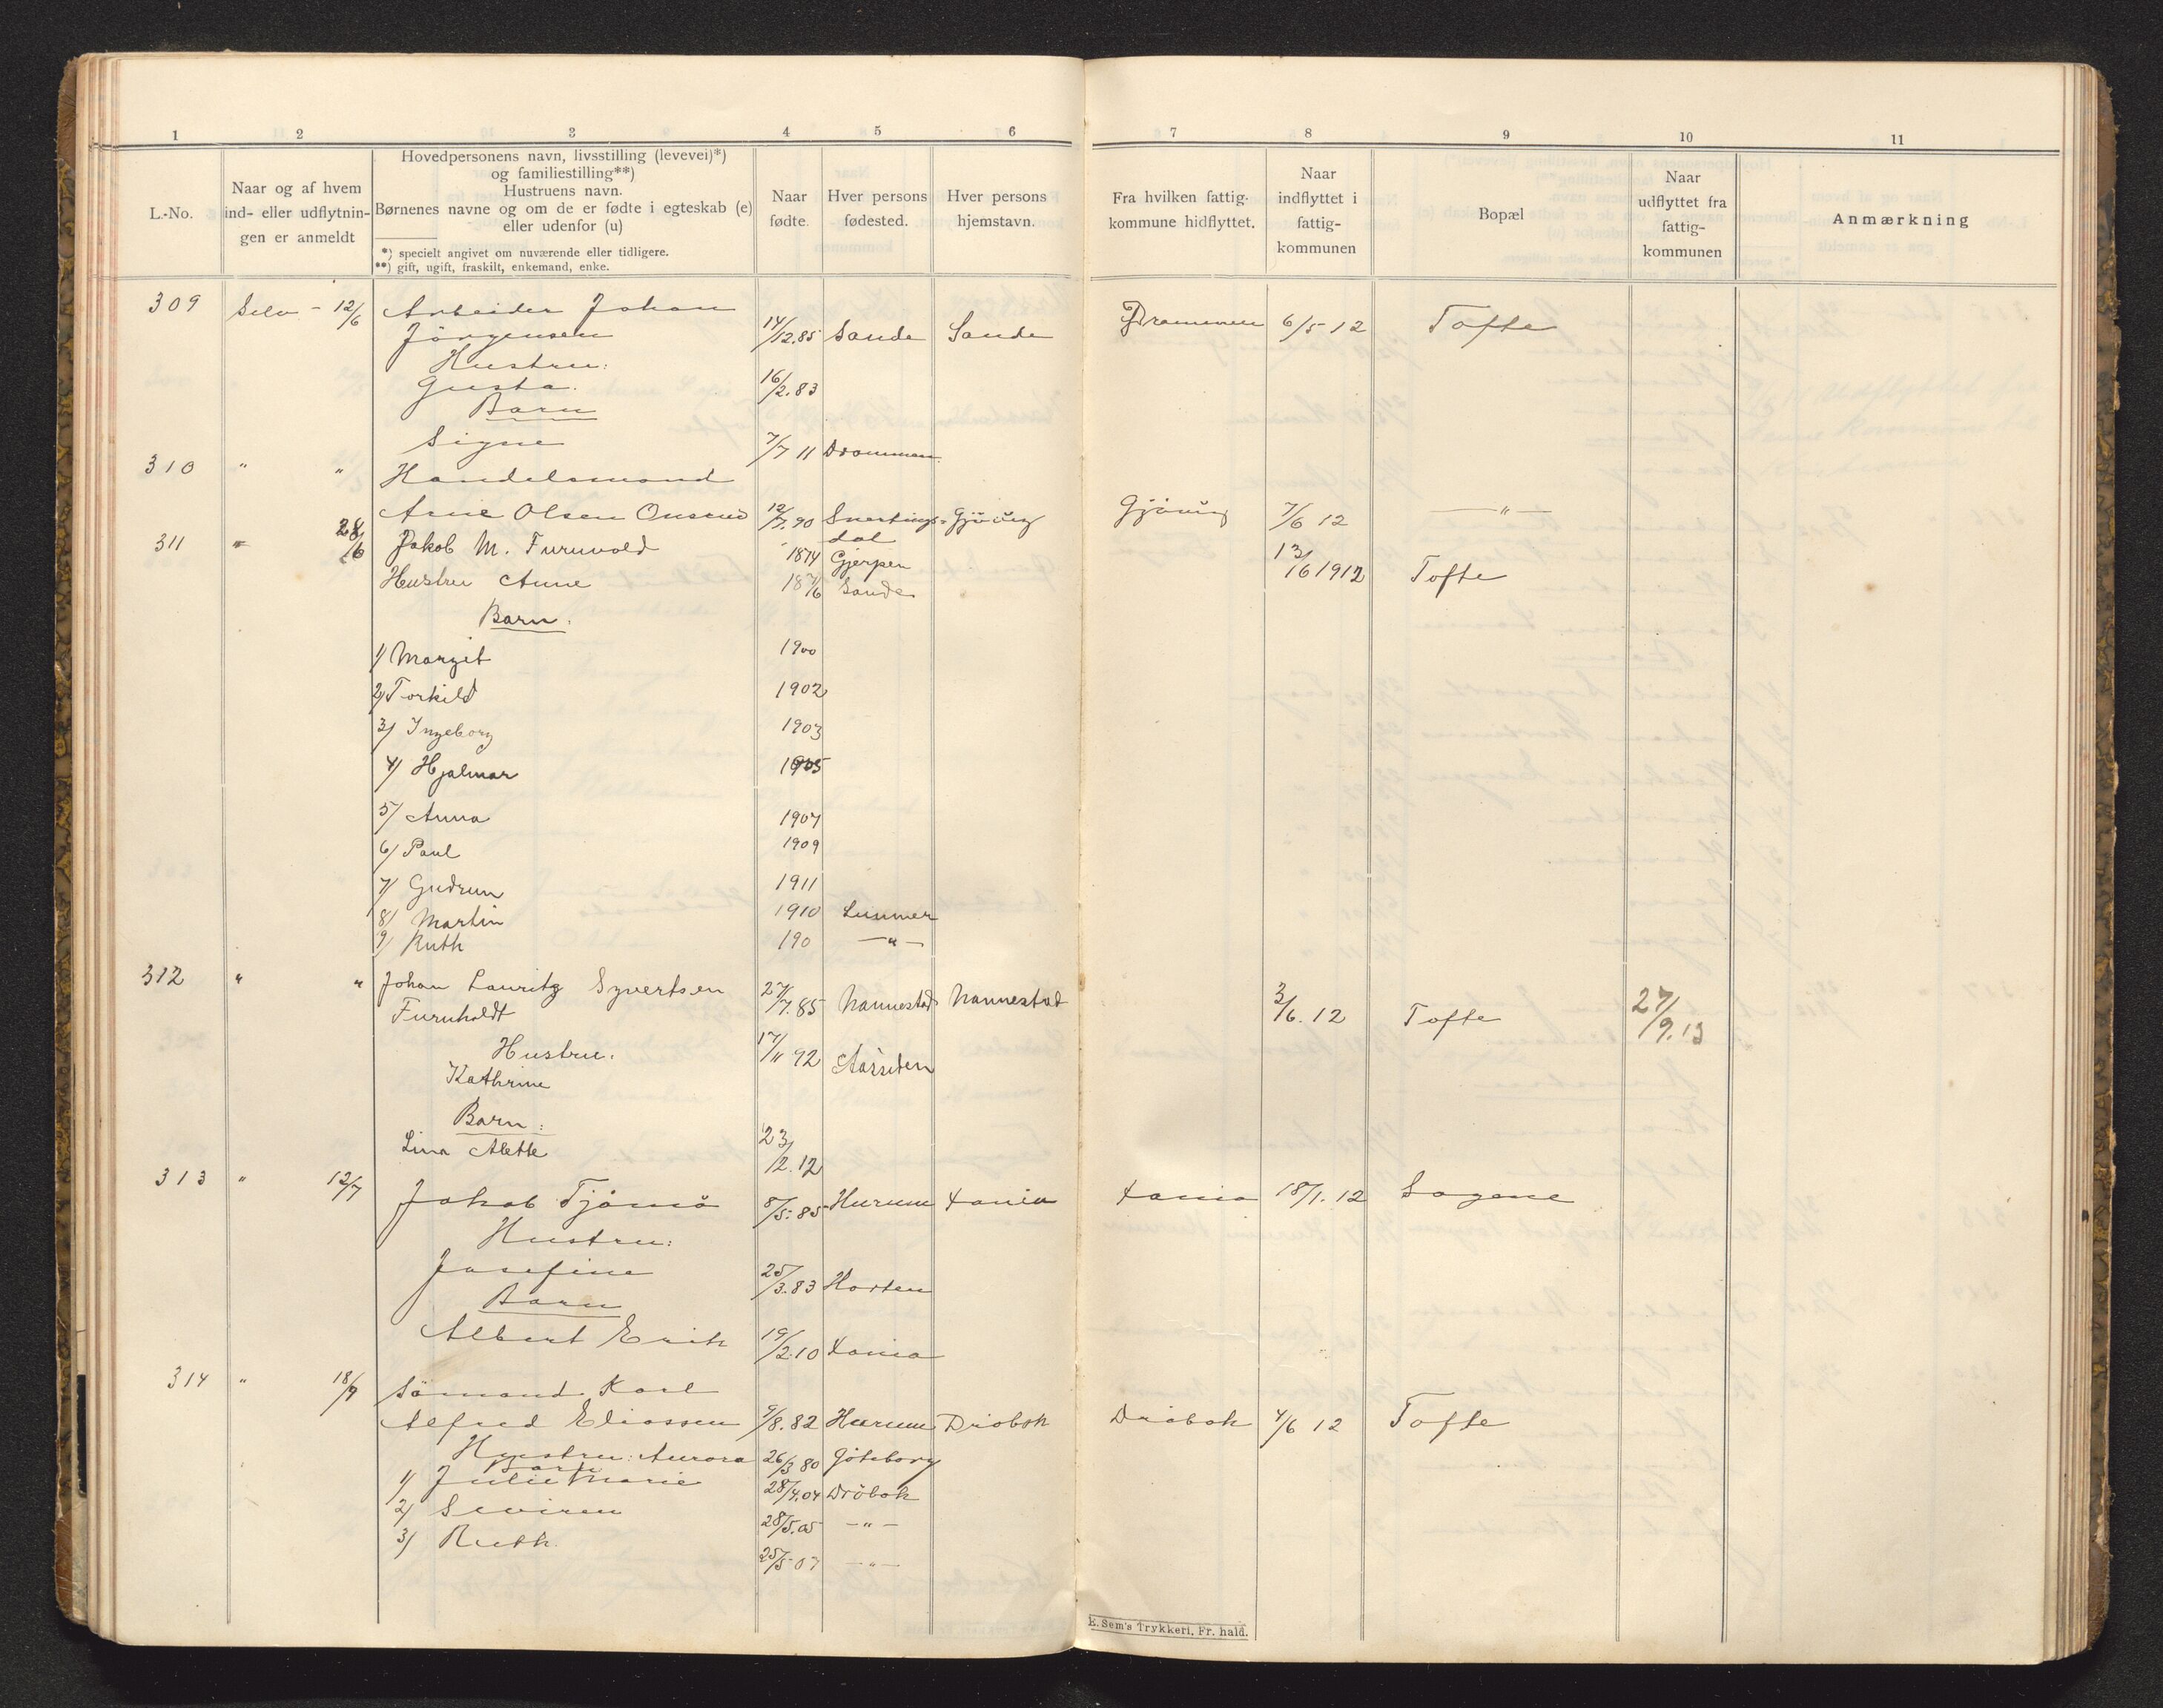 1 2 3 4 5 6 7 8 9 10 11
L.-No.
Naar og af hvem
ind- eller udflytnin-
gen er anmeldt
Hovedpersonens navn, livsstilling (levevei)*)
og familiestilling**)
Hustruens navn.
Børnenes navne og om de er fødte i egteskab (e)
eller udenfor (u)
*) specielt angivet om nuværende eller tidligere.
**) gift, ugift, fraskilt, enkemand, enke.
Naar
fødte.
Hver persons
fødested.
Hver persons
hjemstavn.
Fra hvilken fattig-
kommune hidflyttet.
Naar
indflyttet i
fattig-
kommunen
Bopæl
Naar
udflyttet fra
fattig-
kommunen
Anmærkning
309 Selv - 12/6 Arbeider Johan
Jörgensen 14/12.85 Sande Sande Drammen 6/5 12 Tofte
Hustru:
Gusta. 16/2.83
Barn
Signe 7/7 11 Drammen
310 " " Handelsmand
Arne Olsen 12/7.90 Snertings- Gjövig Gjövig 7/6 12 — " —
dal
311 " 28/6 Jakob M. Furuvold 1874 Gjerpen 13/6 1912 Tofte
Hustru Anne 1876 Sande
Barn:
1) Margit 1900
2) Torkild 1902
3) Ingeborg 1903
4) Hjalmar 1905
5) Anna 1907
6) Paul 1909
7) Gudrun 1911
8) Martin 1910 Lunner
9) Ruth 190 — " —
312 " " Johan Lauritz Syvertsen 27/7.85 Nannestad Nannestad 3/6. 12 Tofte 27/9.13
Furuholdt
Hustru. 17/11 92 Aassiden
Kathrine
Barn:
Lina Alette 23/12.12
313 " 12/7 Jakob Tjömö 8/5.85 Hurum Xania Xania 18/1. 12 Sagene
Hustru:
Josefine 25/3.83 Horten
Barn
Albert Erik 19/2.10 Xania
314 " 18/7 Sömand Karl
Alfred Eliassen 9/8.82 Hurum Dröbak Dröbak 4/6 12 Tofte
Hustru: Aurora 26/3 80 Göteborg
Barn
1) Julie Marie 28/4.04 Dröbak
2) 28/5.05 — " —
3) Ruth. 25/5 07 — " —
E. Sem's Trykkeri, Fr. hald.